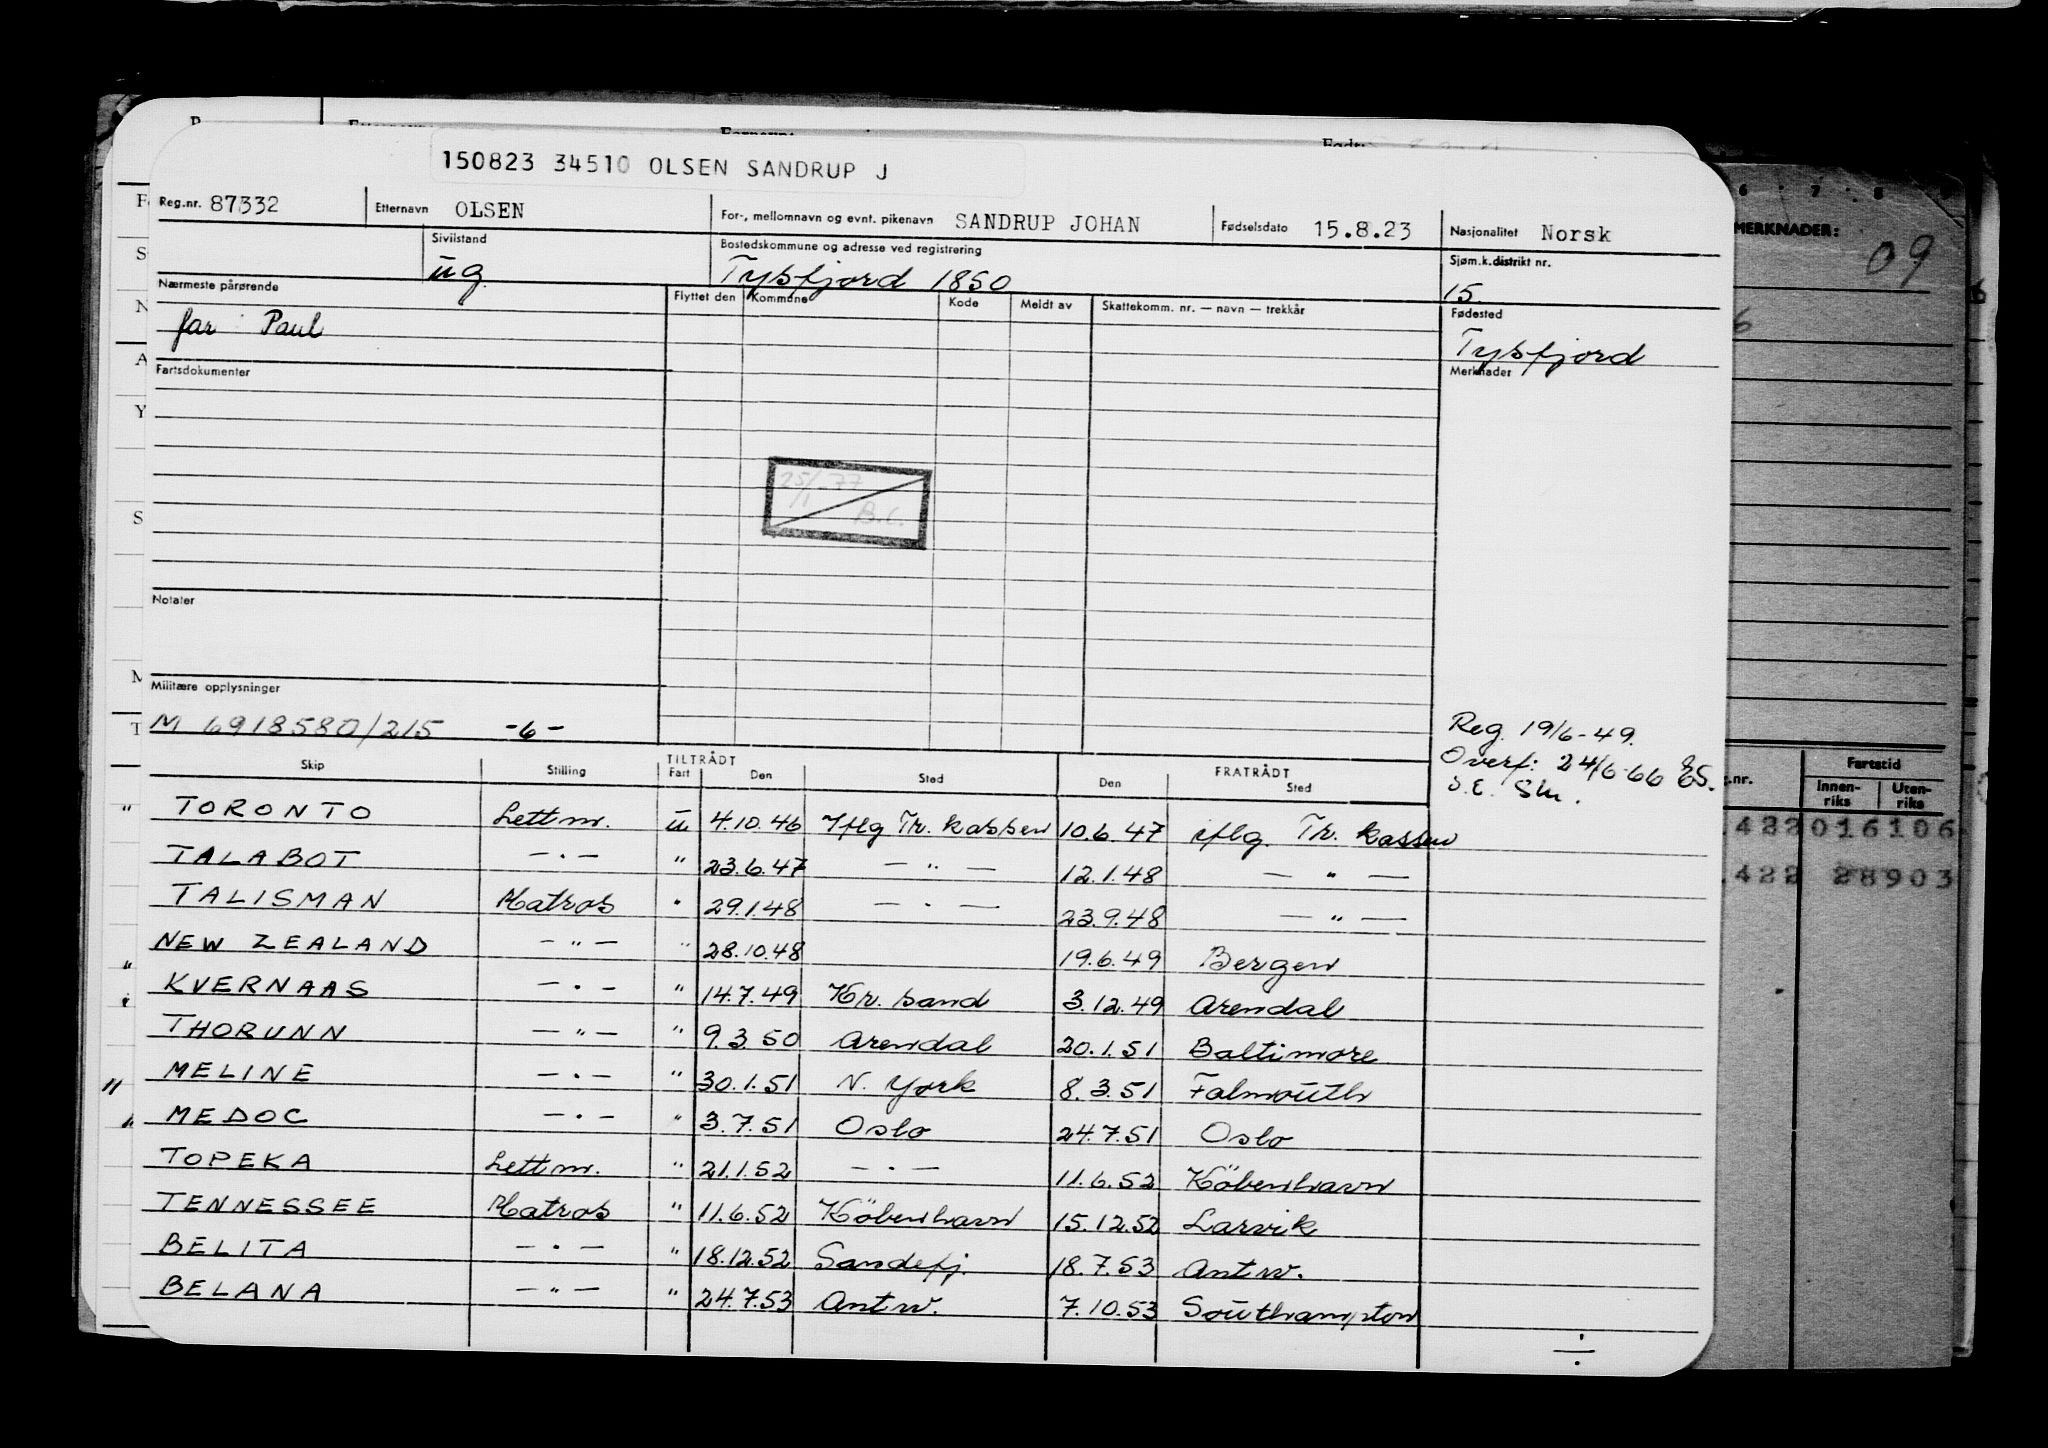 150823 34510 OLSEN SANDRUP J
Reg.nr. 87332 Etternavn OLSEN For-, mellomnavn og evnt. pikenavn SANDRUP JOHAN Fødselsdato 15.8.23 Nasjonalitet Norsk
Sivilstand Bostedskommune og adresse ved registrering Sjøm.k.distrikt nr.
ug Tysfjord 1850 15
Nærmeste pårørende Flyttet den Kommune Kode Meldt av Skattekomm. nr. — navn — trekkår Fødested
far Paul Tysfjord
Fartsdokumenter Merknader
25/1-77
B.C.
Notater
Militære opplysninger
M 6918580/215 -6-
Reg. 19/6-49.
Overf: 24/6-66
S.E. Sm.
Skip Stilling TILTRÅDT Fart Den Sted FRATRÅDT Den Sted
" TORONTO Lettm. u 4.10.46 Iflg Tr. kassen 10.6.47 iflg. Tr. kassen
TALABOT — · — " 23.6.47 — " — 12.1.48 — " —
TALISMAN Matros " 29.1.48 — · — 23.9.48 — " —
NEW ZEALAND — " — " 28.10.48 19.6.49 Bergen
KVERNAAS — · — " 14.7.49 Kr. sand 3.12.49 Arendal
THORUNN — " — " 9.3.50 Arendal 20.1.51 Baltimore
MELINE — · — " 30.1.51 N. York 8.3.51 Falmouth
MEDOC — · — " 3.7.51 Oslo 24.7.51 Oslo
TOPEKA Lettm. " 21.1.52 — · — 11.6.52 Köbenhavn
TENNESSEE Matros " 11.6.52 Köbenhavn 15.12.52 Larvik
BELITA — · — " 18.12.52 Sandefj. 18.7.53 Antw.
BELANA — " — " 24.7.53 Antw. 7.10.53 Southampton
MERKNADER:
09
Fartstid
Innenriks Utenriks
422 016106
422 28903